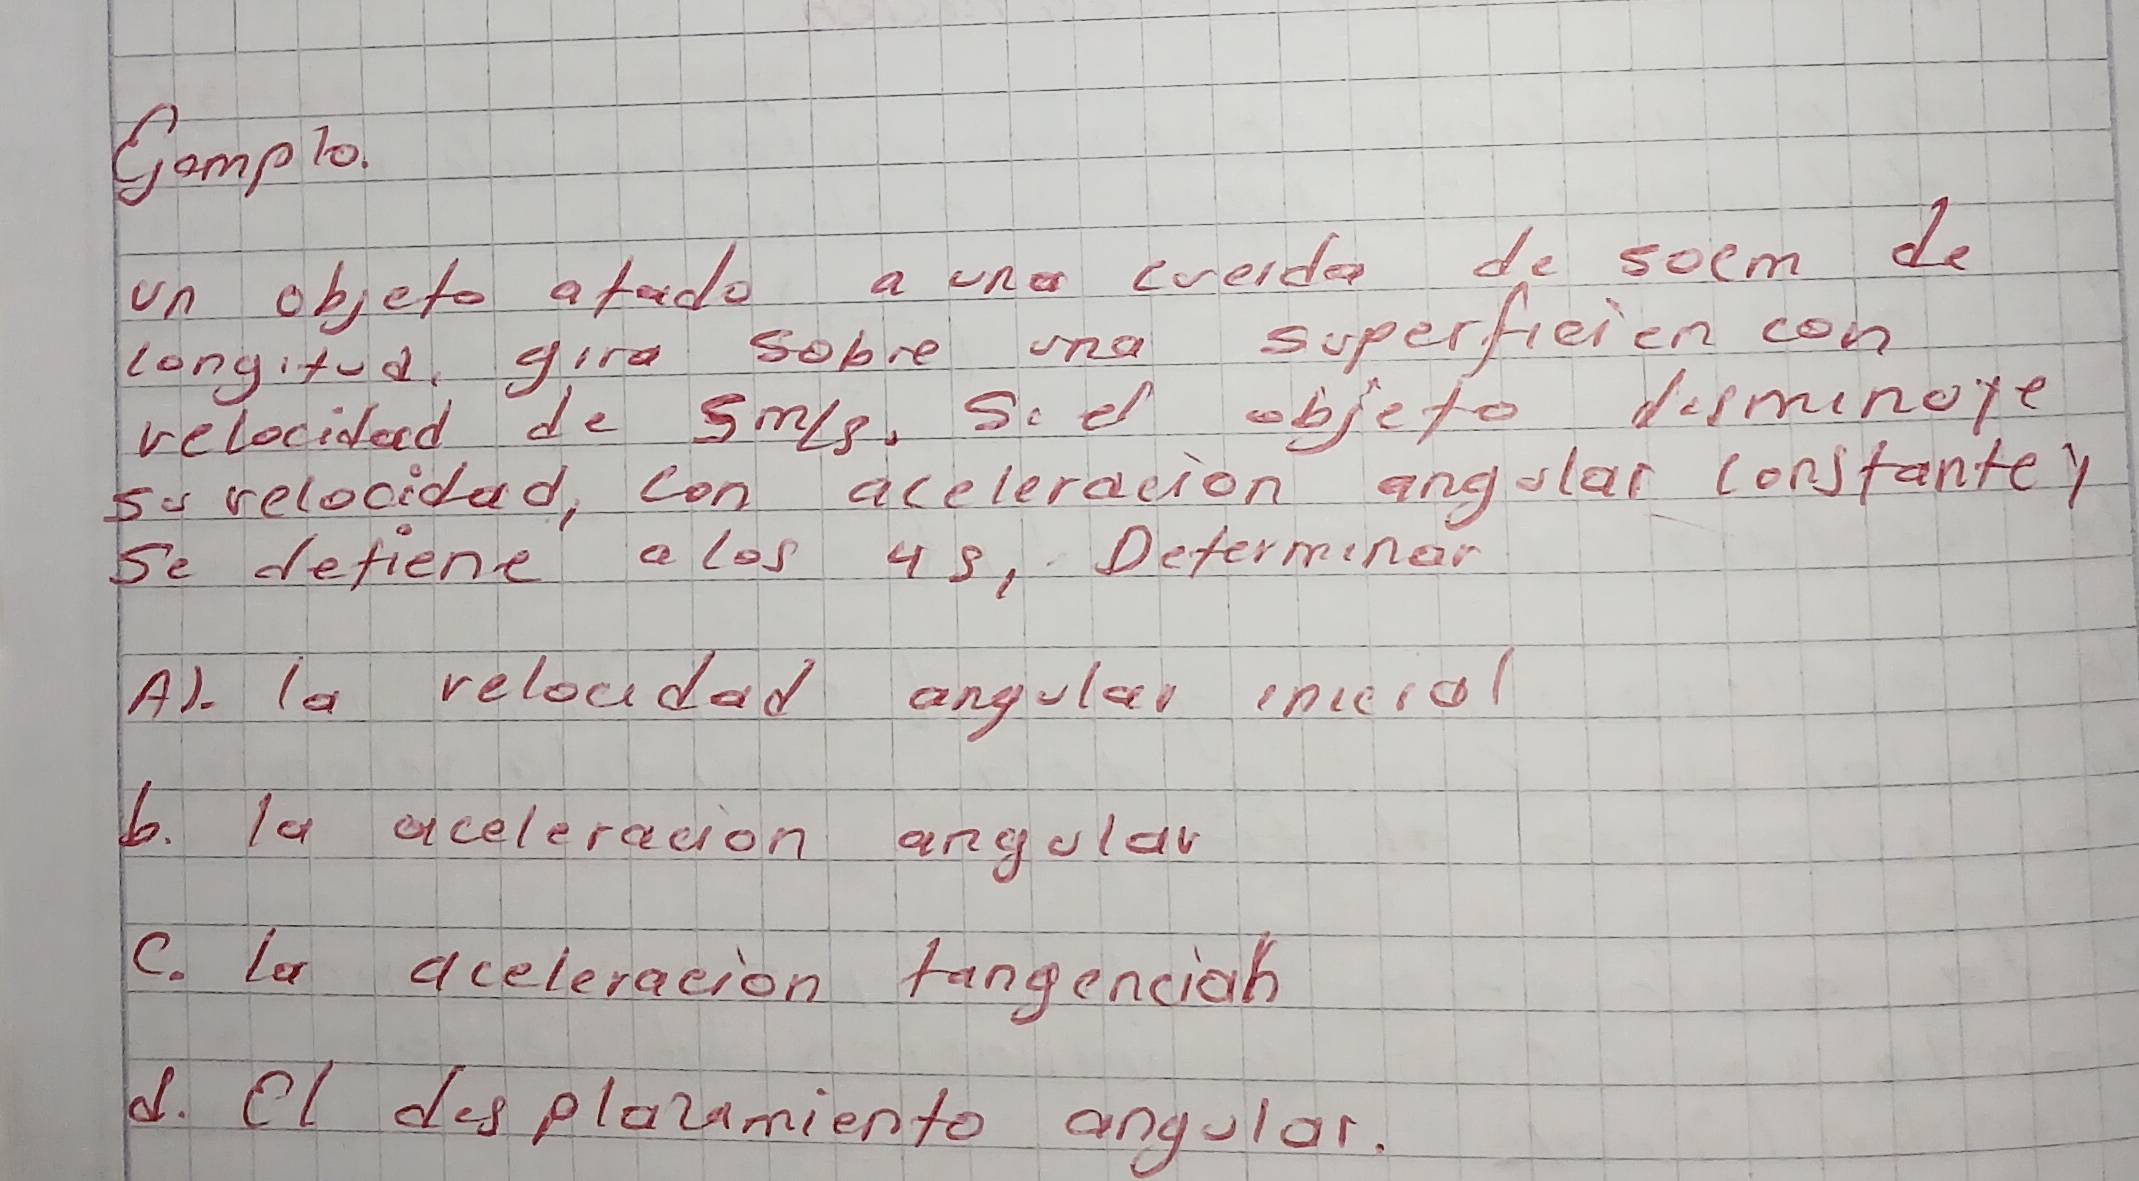 Ejemplo.
un objeto atado a una cuerda de 50cm de
longitud, gira sobre una superficien con
velocidad de 5m/s. Si el objeto disminuye
su velocidad, con aceleracion angular constante y
se detiene a los 4s, Determinar
A). la velocidad angular inicial
b. la aceleracion angular
C. la aceleracion tangencial
d. El desplazamiento angular.